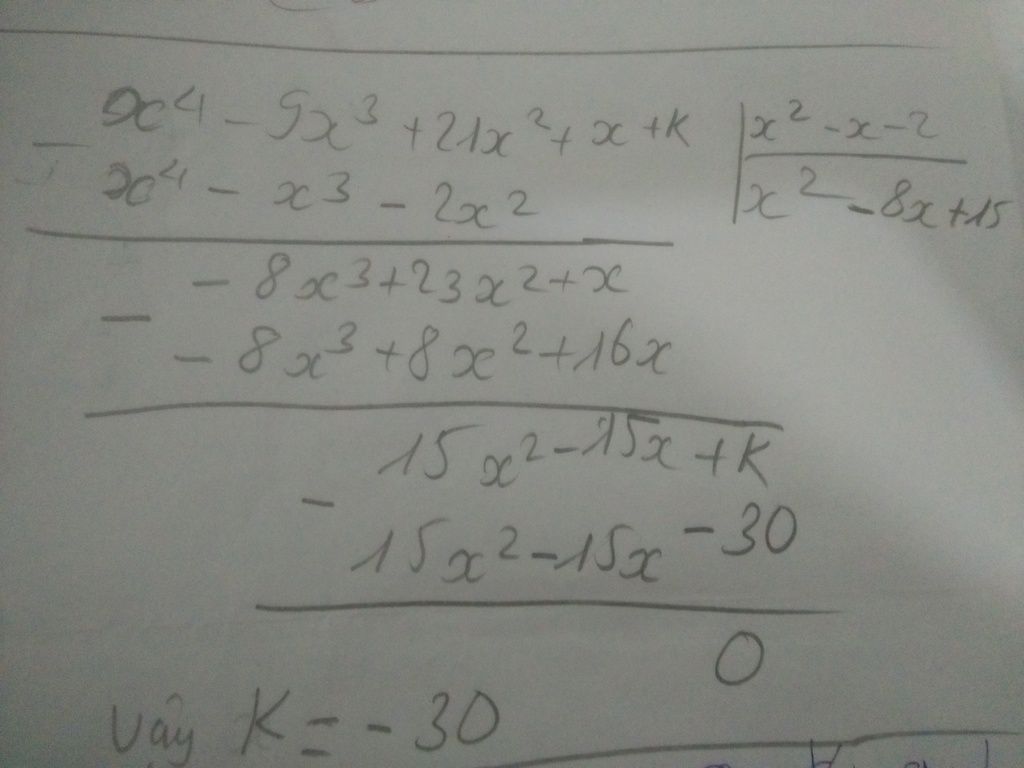 x⁴ - 9x³ + 21x² + x + K | x² - x - 2
x⁴ - x³ - 2x² | x² - 8x + 15
- 8x³ + 23x² + x
- 8x³ + 8x² + 16x
15x² - 15x + K
15x² - 15x - 30
0
Vậy K = - 30